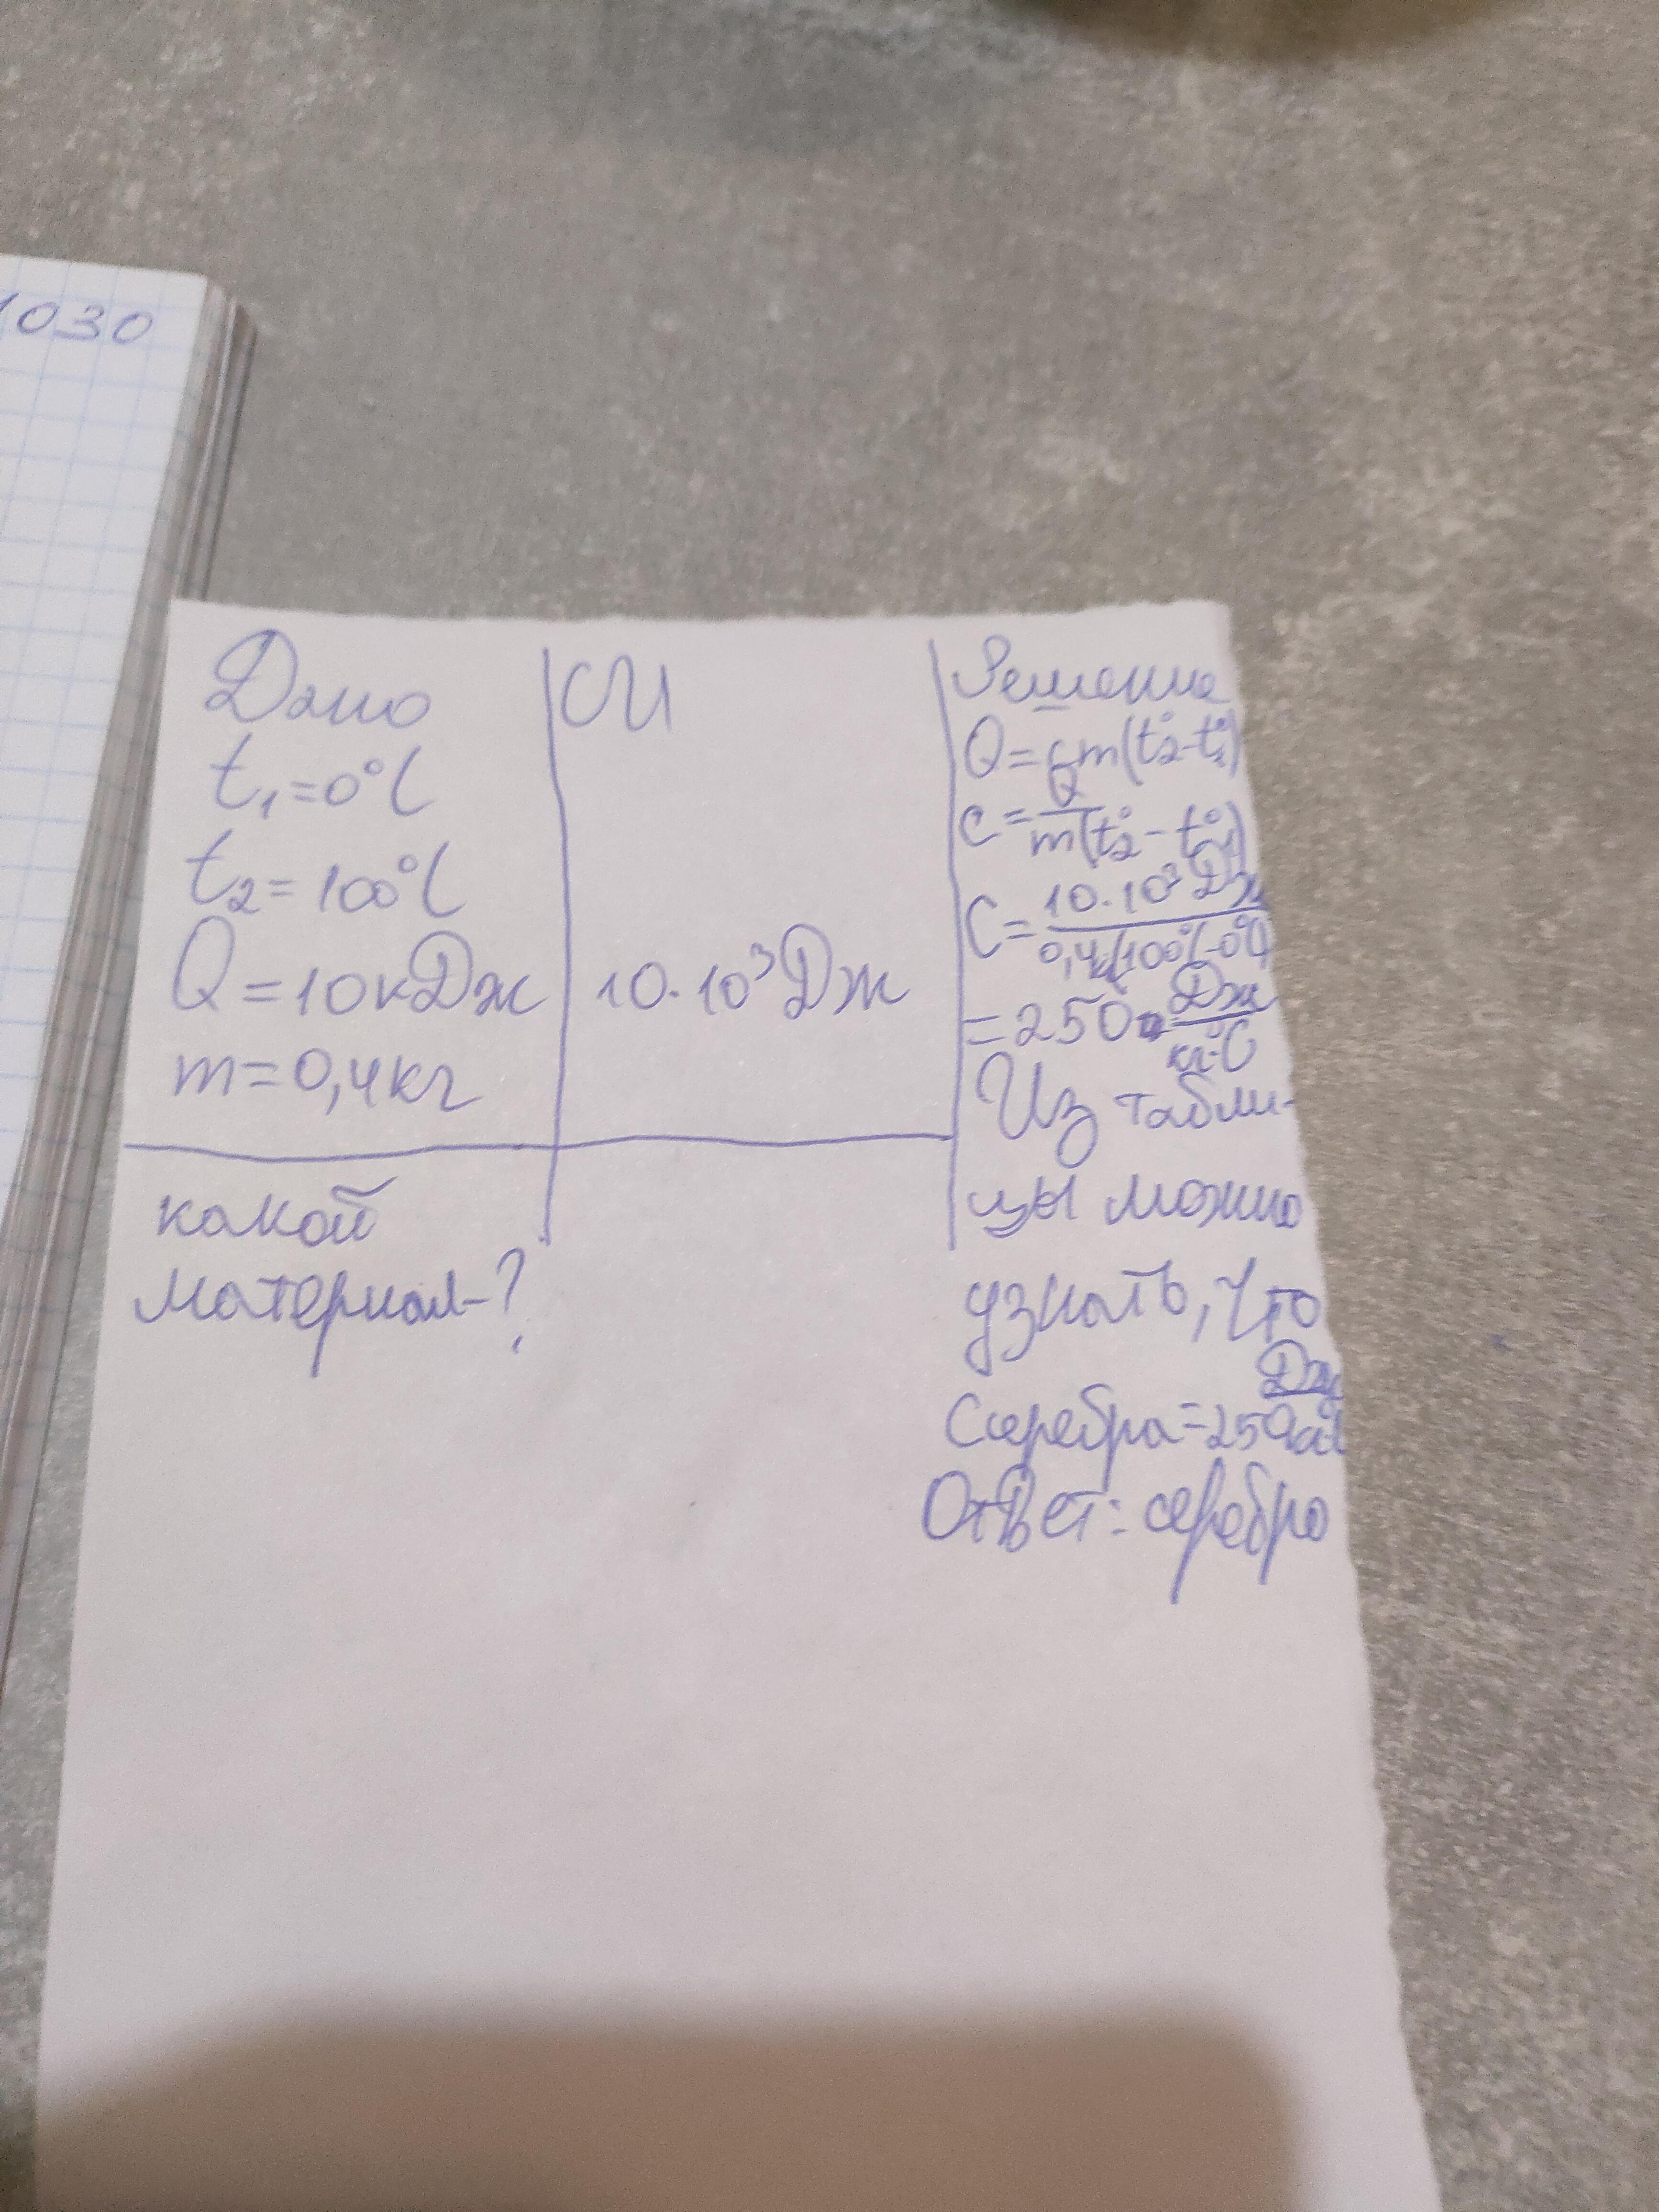 1030
Дано
t₁=0°C
t₂=100°C
Q=10кДж
m=0,4кг
какой
материал-?
СИ
10·10³Дж
Решение
Q=cm(t°₂-t°₁)
c=Q/m(t°₂-t°₁)
C=10·10³Дж/0,4кг(100°C-0°C)
=250 Дж/кг·°C
Из табли-
цы можно
узнать, что
Cсеребра=250 Дж/кг°C
Ответ: серебро